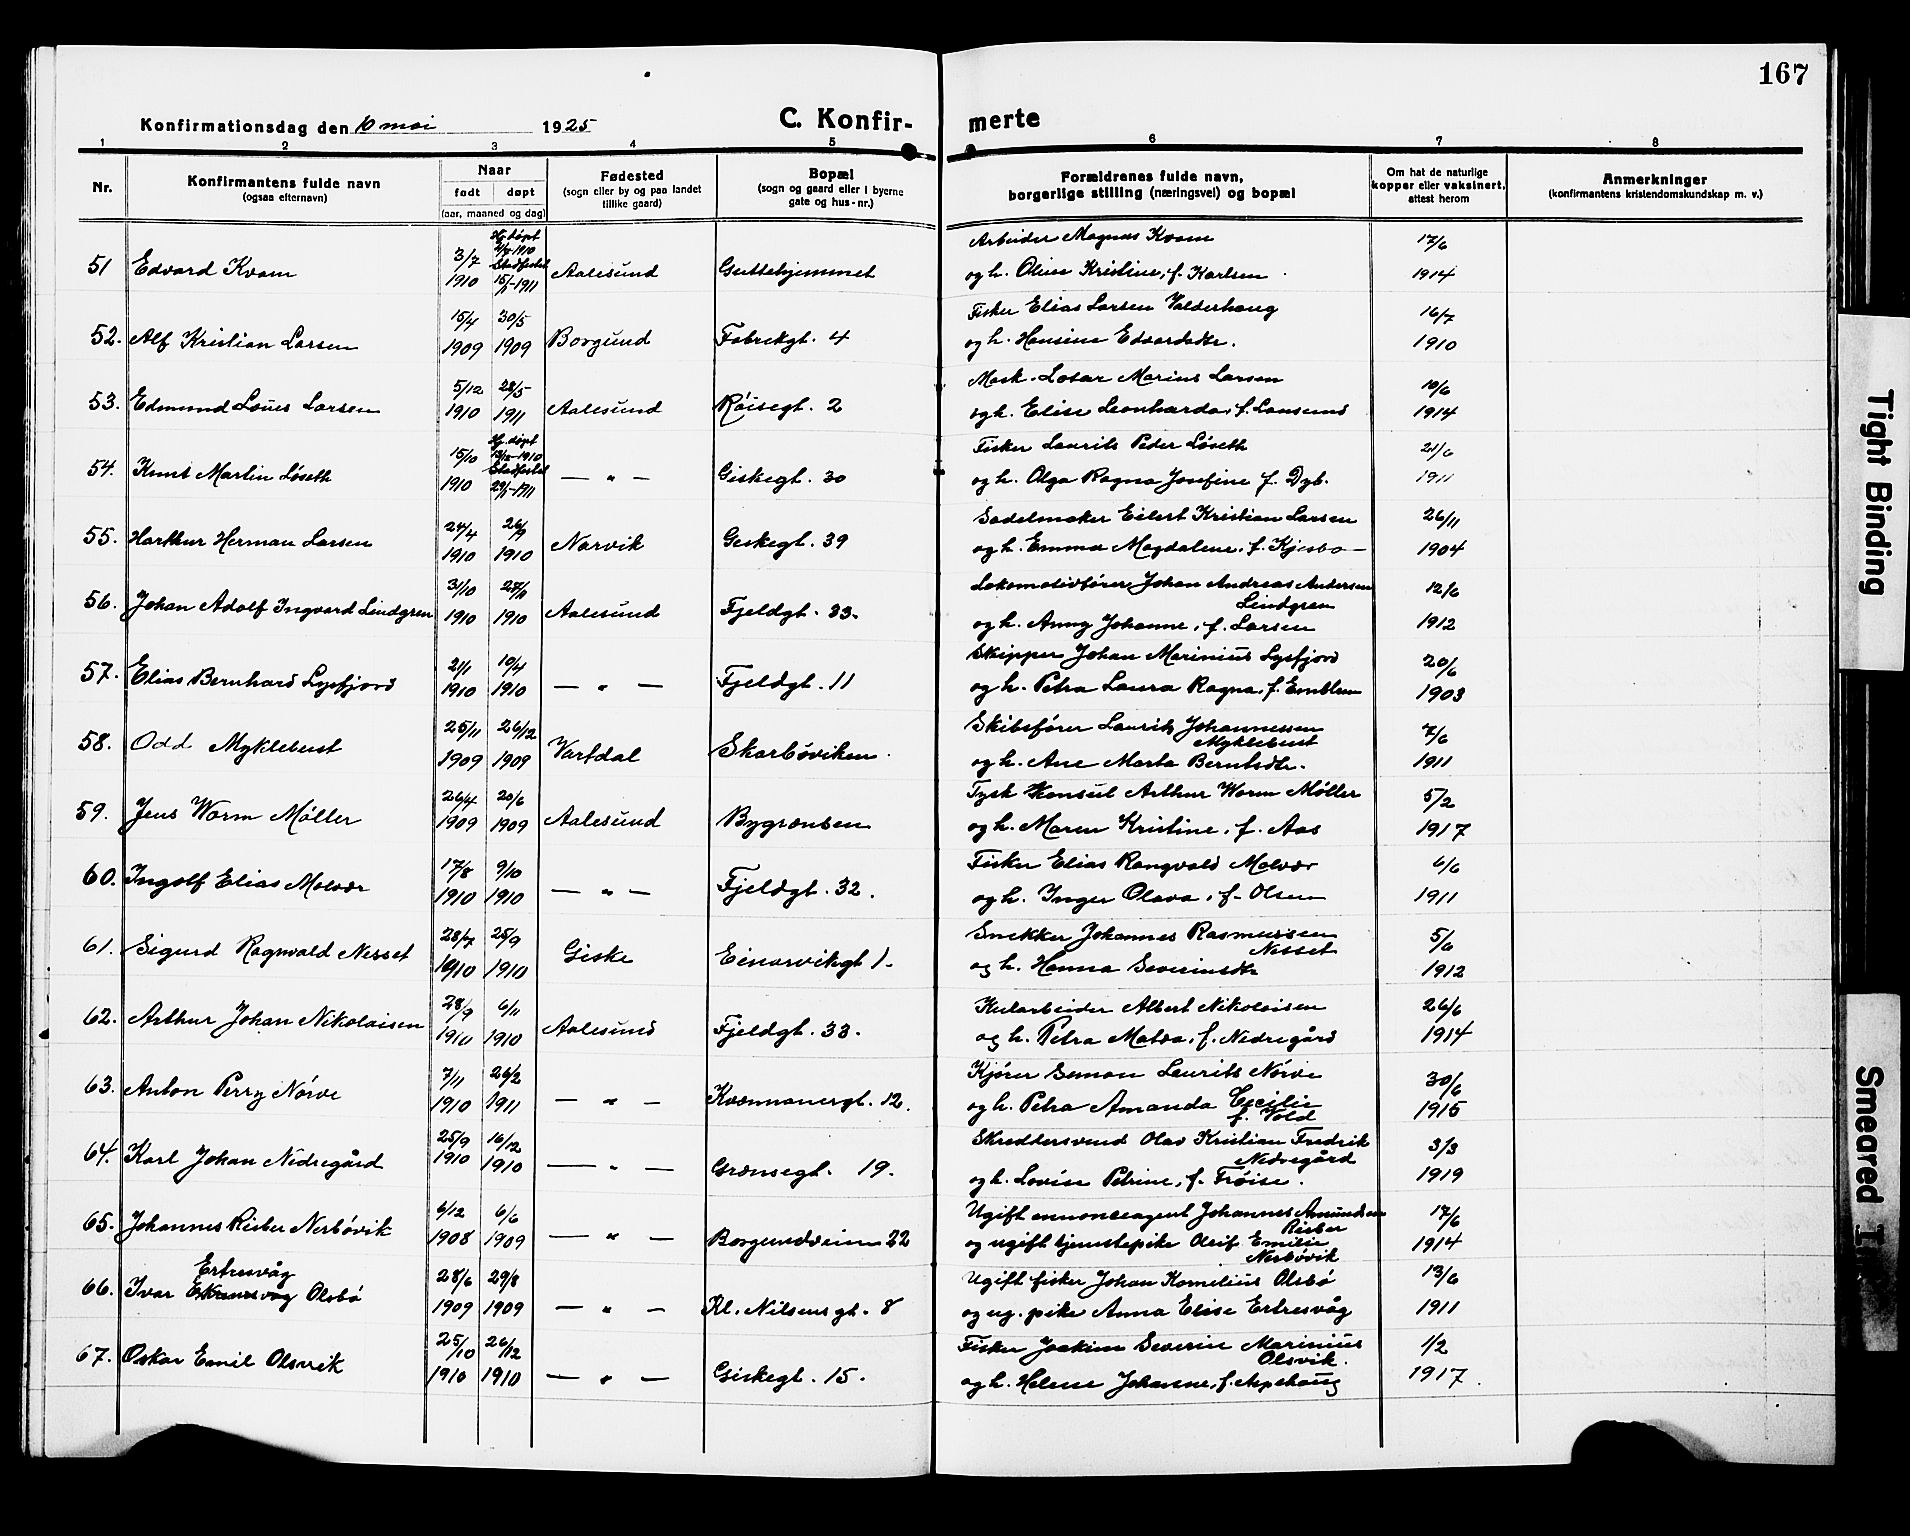 167
Konfirmationsdag den 10 mai 1925
C. Konfir-
merte
1 2 3 4 5 6 7 8
Nr.
Konfirmantens fulde navn
(ogsaa efternavn)
Naar
født døpt
(aar, maaned og dag)
Fødested
(sogn eller by og paa landet
tillike gaard)
Bopæl
(sogn og gaard eller i byerne
gate og hus-nr.)
Forældrenes fulde navn,
borgerlige stilling (næringsvei) og bopæl
Om hat de naturlige
kopper eller vaksinert,
attest herom
Anmerkninger
(konfirmantens kristendomskundskap m. v.)
Hj. døpt
51 Edvard Kvam 3/7 1910 Stadfestet 15/1-1911 Aalesund Guttehjemmet Arbeider Magnus Kvam 17/6
og h. Oline Kristine, f. Karlsen 1914
52. Alf Kristian Larsen 15/4 1909 30/5 1909 Borgund Fabrikgt. 4 Fisker Elias Larsen Valderhaug 16/7
og h. Hansine Edvardsdtr. 1910
53. Edmund Louis Larsen 5/12 1910 28/5 1911 Aalesund Røisegt. 2 Mask. Lotar Marius Larsen 10/6
og h. Elise Leonharda, f. 1914
Hj. døpt
54. Knut Martin Løseth 15/10 1910 13/12-1910 Stadfestet 29/5-1911 — " — Giskegt. 30 Fisker Laurits Peder Løseth 21/6
og h. Olga Ragna Josefine f. Dyb. 1911
55. Harthur Herman Larsen 24/4 1910 26/9 1910 Narvik Geskegt. 39 Sadelmaker Eilert Kristian Larsen 26/11
og h. Emma Magdalene, f. Kjesbo — 1904
56. Johan Adolf Ingvard Lindgren 31/10 1910 27/11 1910 Aalesund Fjeldgt. 33. Lokomotivfører Johan Andreas Andersen 12/6
Lindgren
og h. Anny Johanne, f. Larsen 1912
57. Elias Bernhard Lysfjord 21/1 1910 10/4 1910 — " — Fjeldgt. 11 Skipper Johan Marinius Lysfjord 20/6
og h. Petra Laura Ragna, f. Emblem 1903
58. Odd Myklebust 25/11 1909 26/12 1909 Vartdal Skarbøviken Skibsfører Laurits Johannessen 7/6
Myklebust
og h. Ane Marta Berntsdtr. 1911
59. Jens Worm Møller 26/4 1909 20/6 1909 Aalesund Bygrænsen Tysk Konsul Arthur Worm Møller 5/2
og h. Maren Kristine, f. Aas 1917
60. Ingolf Elias Molvær 17/8 1910 9/10 1910 — " — Fjeldgt. 32. Fisker Elias Rangvald Molvær 6/6
og h. Inger Olava, f. Olsen 1911
61. Sigurd Ragnvald Nesset 28/7 1910 25/9 1910 Giske Einarvikgt 1. Snekker Johannes Rasmussen 5/6
Nesset
og h. Hanna Severinsdtr 1912
62. Arthur Johan Nikolaisen 28/9 1910 6/11 1910 Aalesund Fjeldgt. 33. Kularbeider Albert Nikolaisen 26/6
og h. Petra Matea, f. Nedregård 1914
63. Anton Perry Nørve 7/11 1910 26/2 1911 — " — Kvennanergt. 12. Kjører Simon Laurits Nørve 30/6
og h. Petra Amanda Cecilie 1915
f. Vold
64. Karl Johan Nedregård 25/9 1910 16/12 1910 — " — Grænsegt. 19. Skreddersvend Olav Kristian Fredrik 3/3
Nedregård
og h. Lovise Petrine, f. Frøise. 1919
65. Johannes Risber Nerbøvik 6/12 1908 6/6 1909 — " — Borgundveien 22 Ugift annonceagent Johannes Amundsen 17/6
Risber
og ugift tjenstepike Oleif Emilie 1914
Nerbøvik
Ertresvåg
66. Ivar Olsbø 28/6 1909 29/8 1909 — " — Kl. Nilsensgt. 8 Ugift fisker Johan Kornelius Olsbø 13/6
og ug. pike Anna Elise Ertresvåg 1911
67. Oskar Emil Olsvik 25/10 1910 26/12 1910 — " — Giskegt. 15. Fisker Joakim Severin Marinius 1/2
Olsvik.
og h. Helene Johanne, f. Aspehaug 1917.
Tight Binding
Smeared